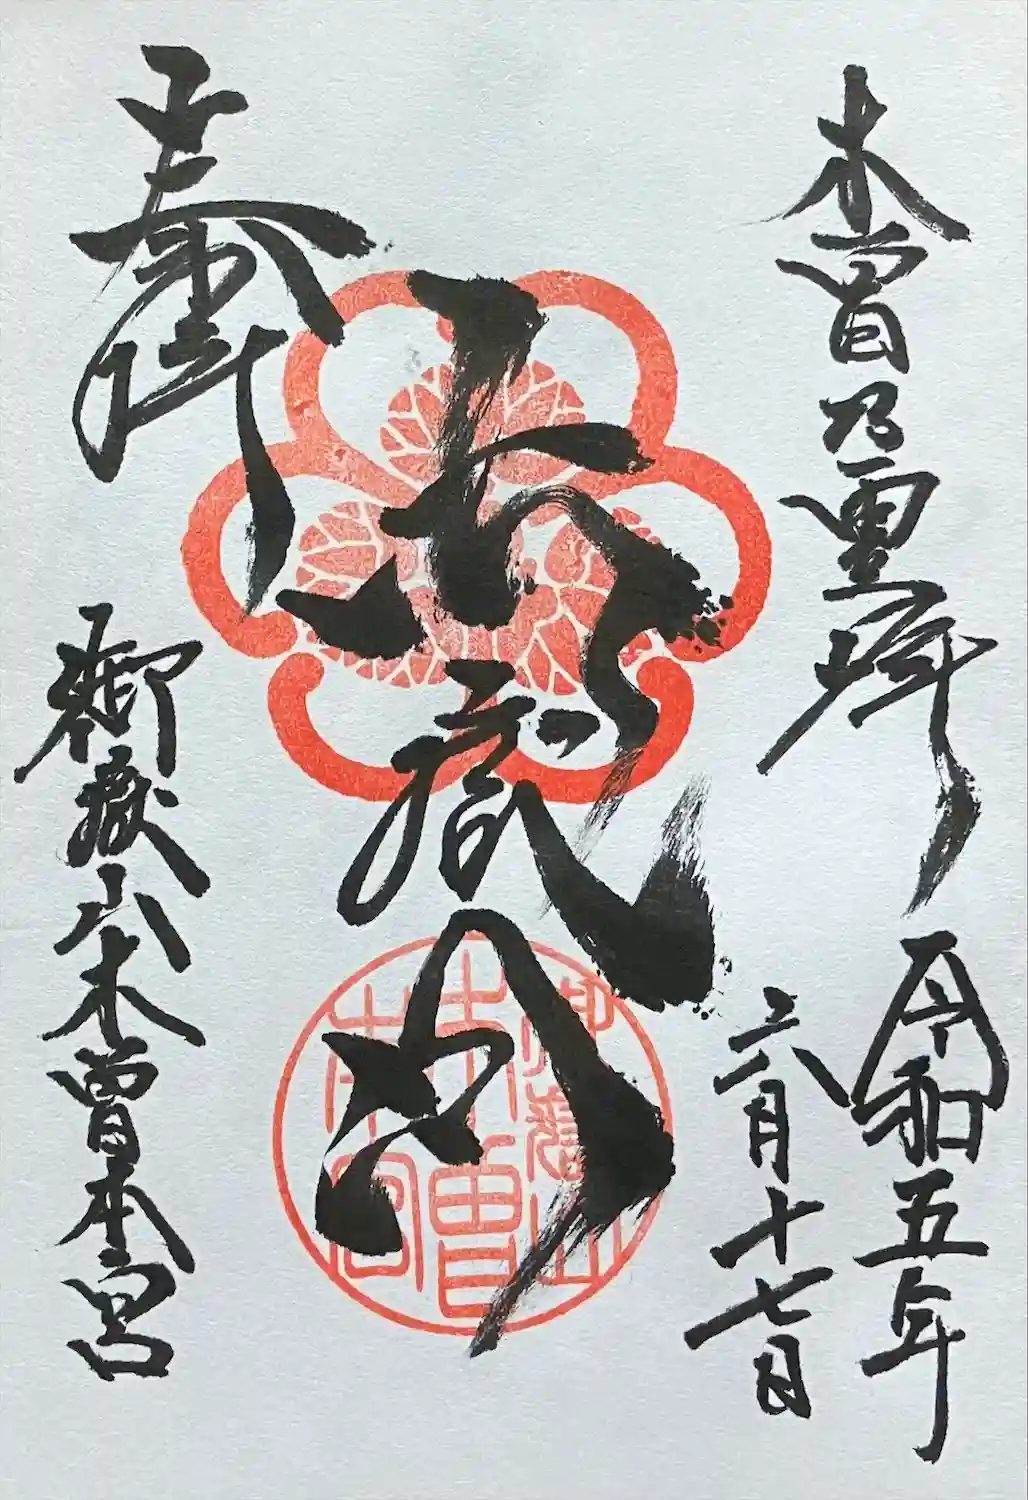 木曽乃霊峰
令和五年
六月十七日
奉拝
御嶽山木曽本宮
御嶽山
木曽
本宮